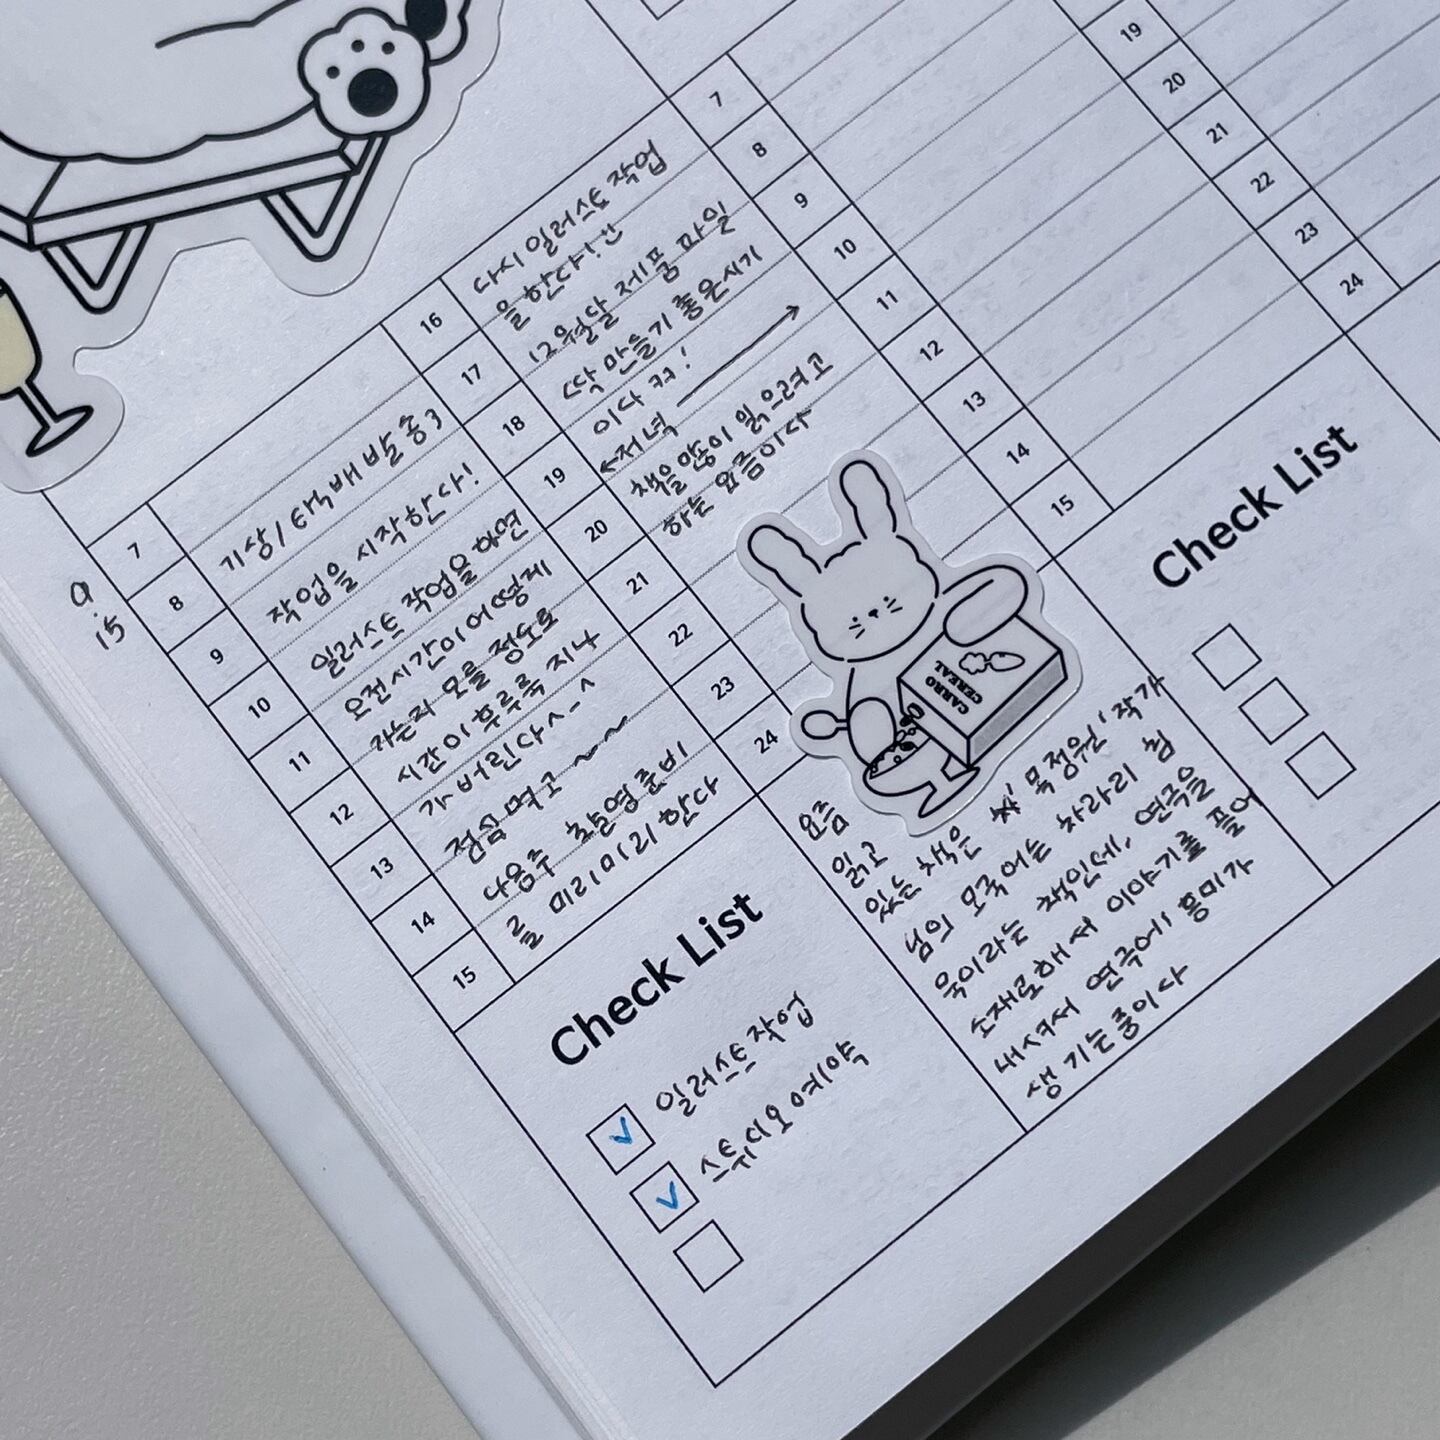 7
8
9
10
11
12
13
14
15
9.15
기상/택배발송
작업을 시작한다!
일러스트 작업을 하면
오전시간이 어떻게
가는지 모를 정도로
시간이 후루룩 지나
가버린다^-^
점심먹고~~
다음주 촬영준비
를 미리미리 한다
16
17
18
19
20
21
22
23
24
다시 일러스트 작업
을 한다!
12월달 제품 파일
딱 만들기 좋은시기
이다 ㅋㅋ!
←저녁→
책을많이 읽으려고
하는 요즘이다
CARRO
CEREAL
Check List
일러스트작업
스튜디오 예약
요즘
읽고
있는 책은 목정원 작가
님의 모국어는 차라리 침
묵이라는 책인데, 연극을
소재로해서 이야기를 풀어
내셔서 연극에 흥미가
생기는중이다
7
8
9
10
11
12
13
14
15
19
20
21
22
23
24
Check List